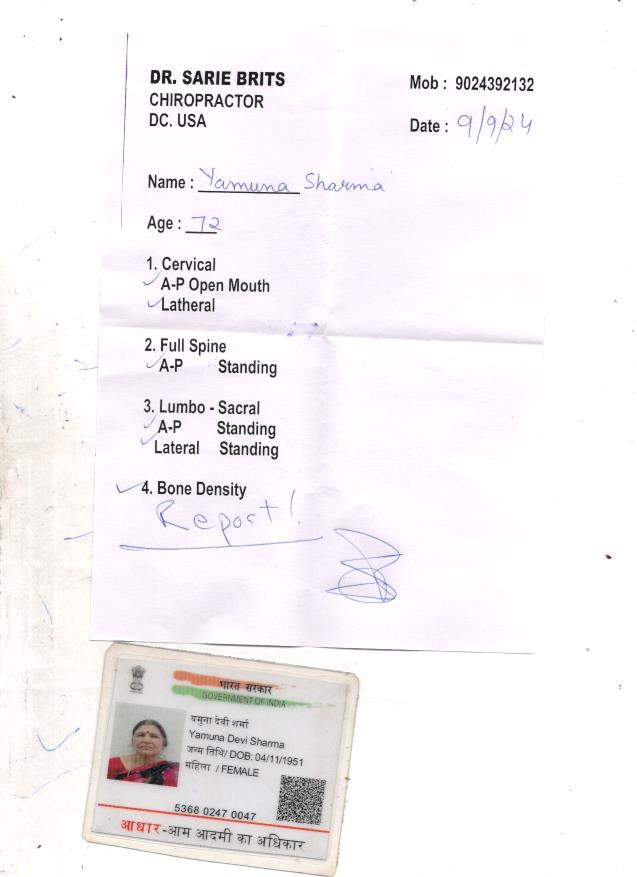 DR. SARIE BRITS
CHIROPRACTOR
DC. USA
Mob : 9024392132
Date : 9/9/24
Name : Yamuna Sharma
Age : 72
1. Cervical
A-P Open Mouth
Latheral
2. Full Spine
A-P Standing
3. Lumbo - Sacral
A-P Standing
Lateral Standing
4. Bone Density
Report!
भारत सरकार
GOVERNMENT OF INDIA
यमुना देवी शर्मा
Yamuna Devi Sharma
जन्म तिथि/ DOB: 04/11/1951
महिला / FEMALE
5368 0247 0047
आधार-आम आदमी का अधिकार